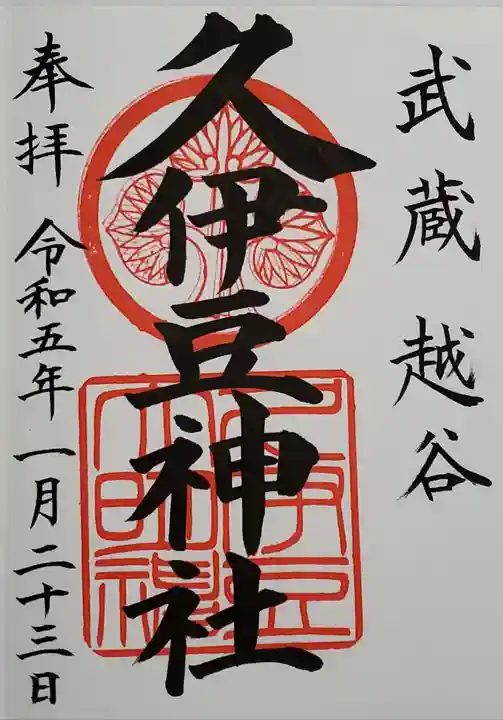 武蔵 越谷
久伊豆神社
奉拝 令和五年一月二十三日